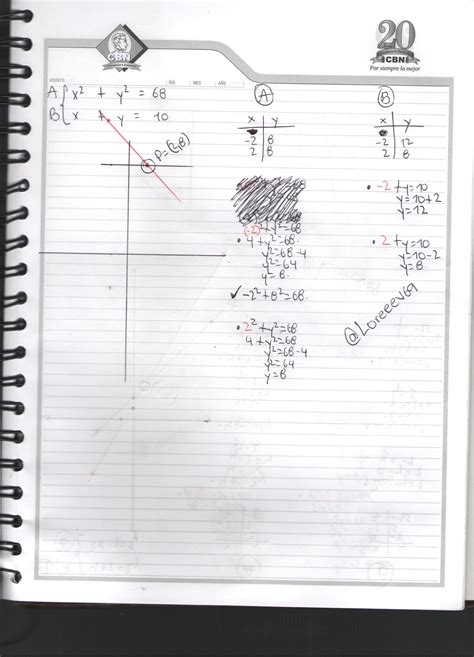 CBN
20
CBN
Por siempre la mejor
ASUNTO
DÍA MES AÑO
A { x² + y² = 68
B { x + y = 10
P=(2,8)
A
x y
-2 8
2 8
(-2)²+y²=68
• 4+y²=68
y²=68-4
y²=64
y=8
✓ -2²+8²=68
• 2²+y²=68
4+y²=68
y²=68-4
y²=64
y=8
B
x y
-2 12
2 8
• -2+y=10
y=10+2
y=12
• 2+y=10
y=10-2
y=8
@Loreeev69